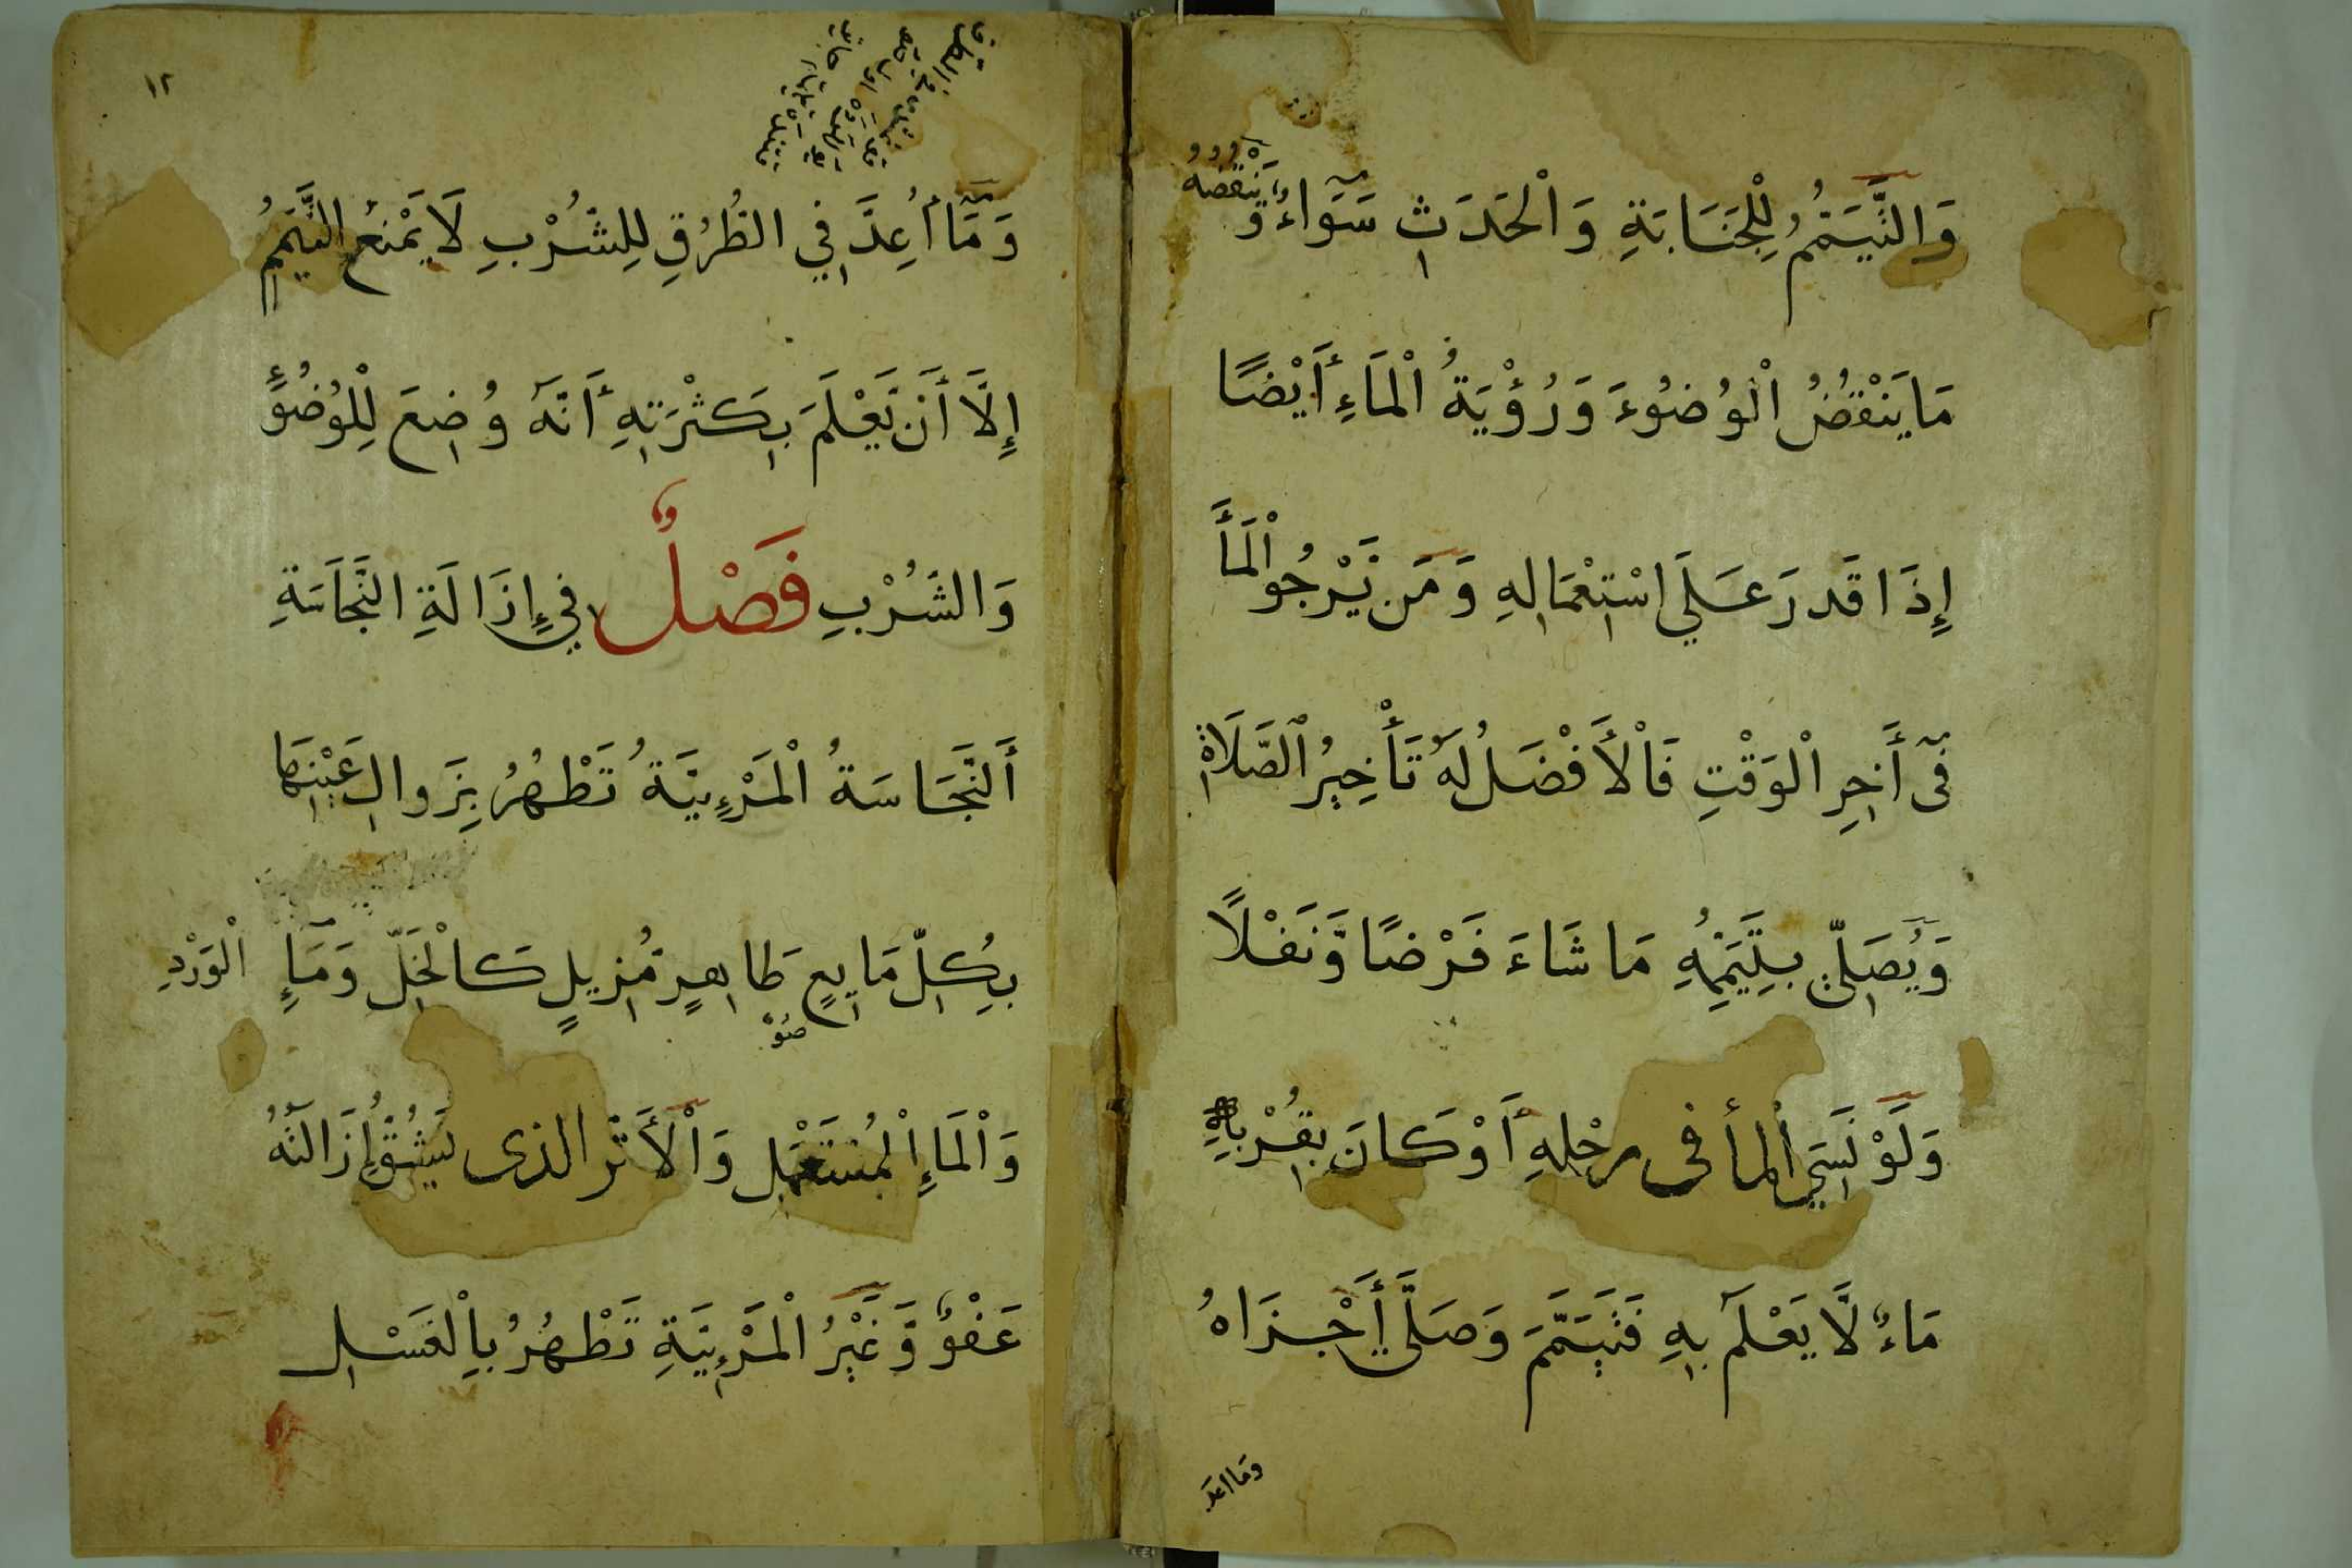 وَالتَّيَمُّمُ لِلْجَنَابَةِ وَالْحَدَثِ سَوَاءٌ وَّيَنْقُضُهُ
مَا يَنْقُضُ الْوُضُوءَ وَرُؤْيَةُ الْمَاءِ أَيْضًا
إِذَا قَدرَ عَلَي اسْتِعْمَالِهِ وَمَن يَّرْجُوا الْمَأَ
فِى أَخِرِ الْوَقْتِ فَالْأَفْضَلُ لَهُ تَأْخِيرُ الصَّلَاةِ
وَيُصَلِّى بِتَيَمُّمِهِ مَا شَاءَ فَرْضًا وَّنَفْلًا
وَلَوْ نَسِيَ الْمأَ فى رحْلِهِ أَوْ كَانَ بِقُرْبِهِ
مَاءٌ لَّا يَعْلَمُ بِهِ فَتَيَمَّمَ وَصَلَّى أَجْزَاهُ
وَمَا اعد
١٢
وَمَا أُعِدَّ فِي الطُّرُقِ لِلشُّرْبِ لَا يَمْنَعُ التَّيَمُّمَ
إِلَّا أَن يَّعْلَمَ بِكَثْرَتِهِ أَنَّهُ وُضِعَ لِلْوُضُوءِ
وَالشُّرْبِ فَصْلٌ فِي إِزَالَةِ النَّجَاسَةِ
أَلنَّجَاسَةُ الْمَرْئِيَّةُ تَطْهُرُ بِزَوالِ عَيْنِهَا
بِكُلِّ مَايِعٍ طَاهِرٍ مُّزِيلٍ كَالْخَلِّ وَمَإِ الْوَرْدِ
وَالْمَاءِ الْمُسْتَعْمَلِ وَالْأَثَر الذى يَشُقُّ إِزَالَتُهُ
عَفْوٌ وَّغَيْرُ الْمَرْئِيَّةِ تَطْهُرُ بِالْغَسْلِ